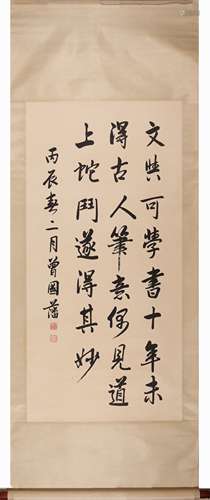 文與可學書十年未
得古人筆意偶見道
上蛇鬥遂得其妙
丙辰春二月曾國藩